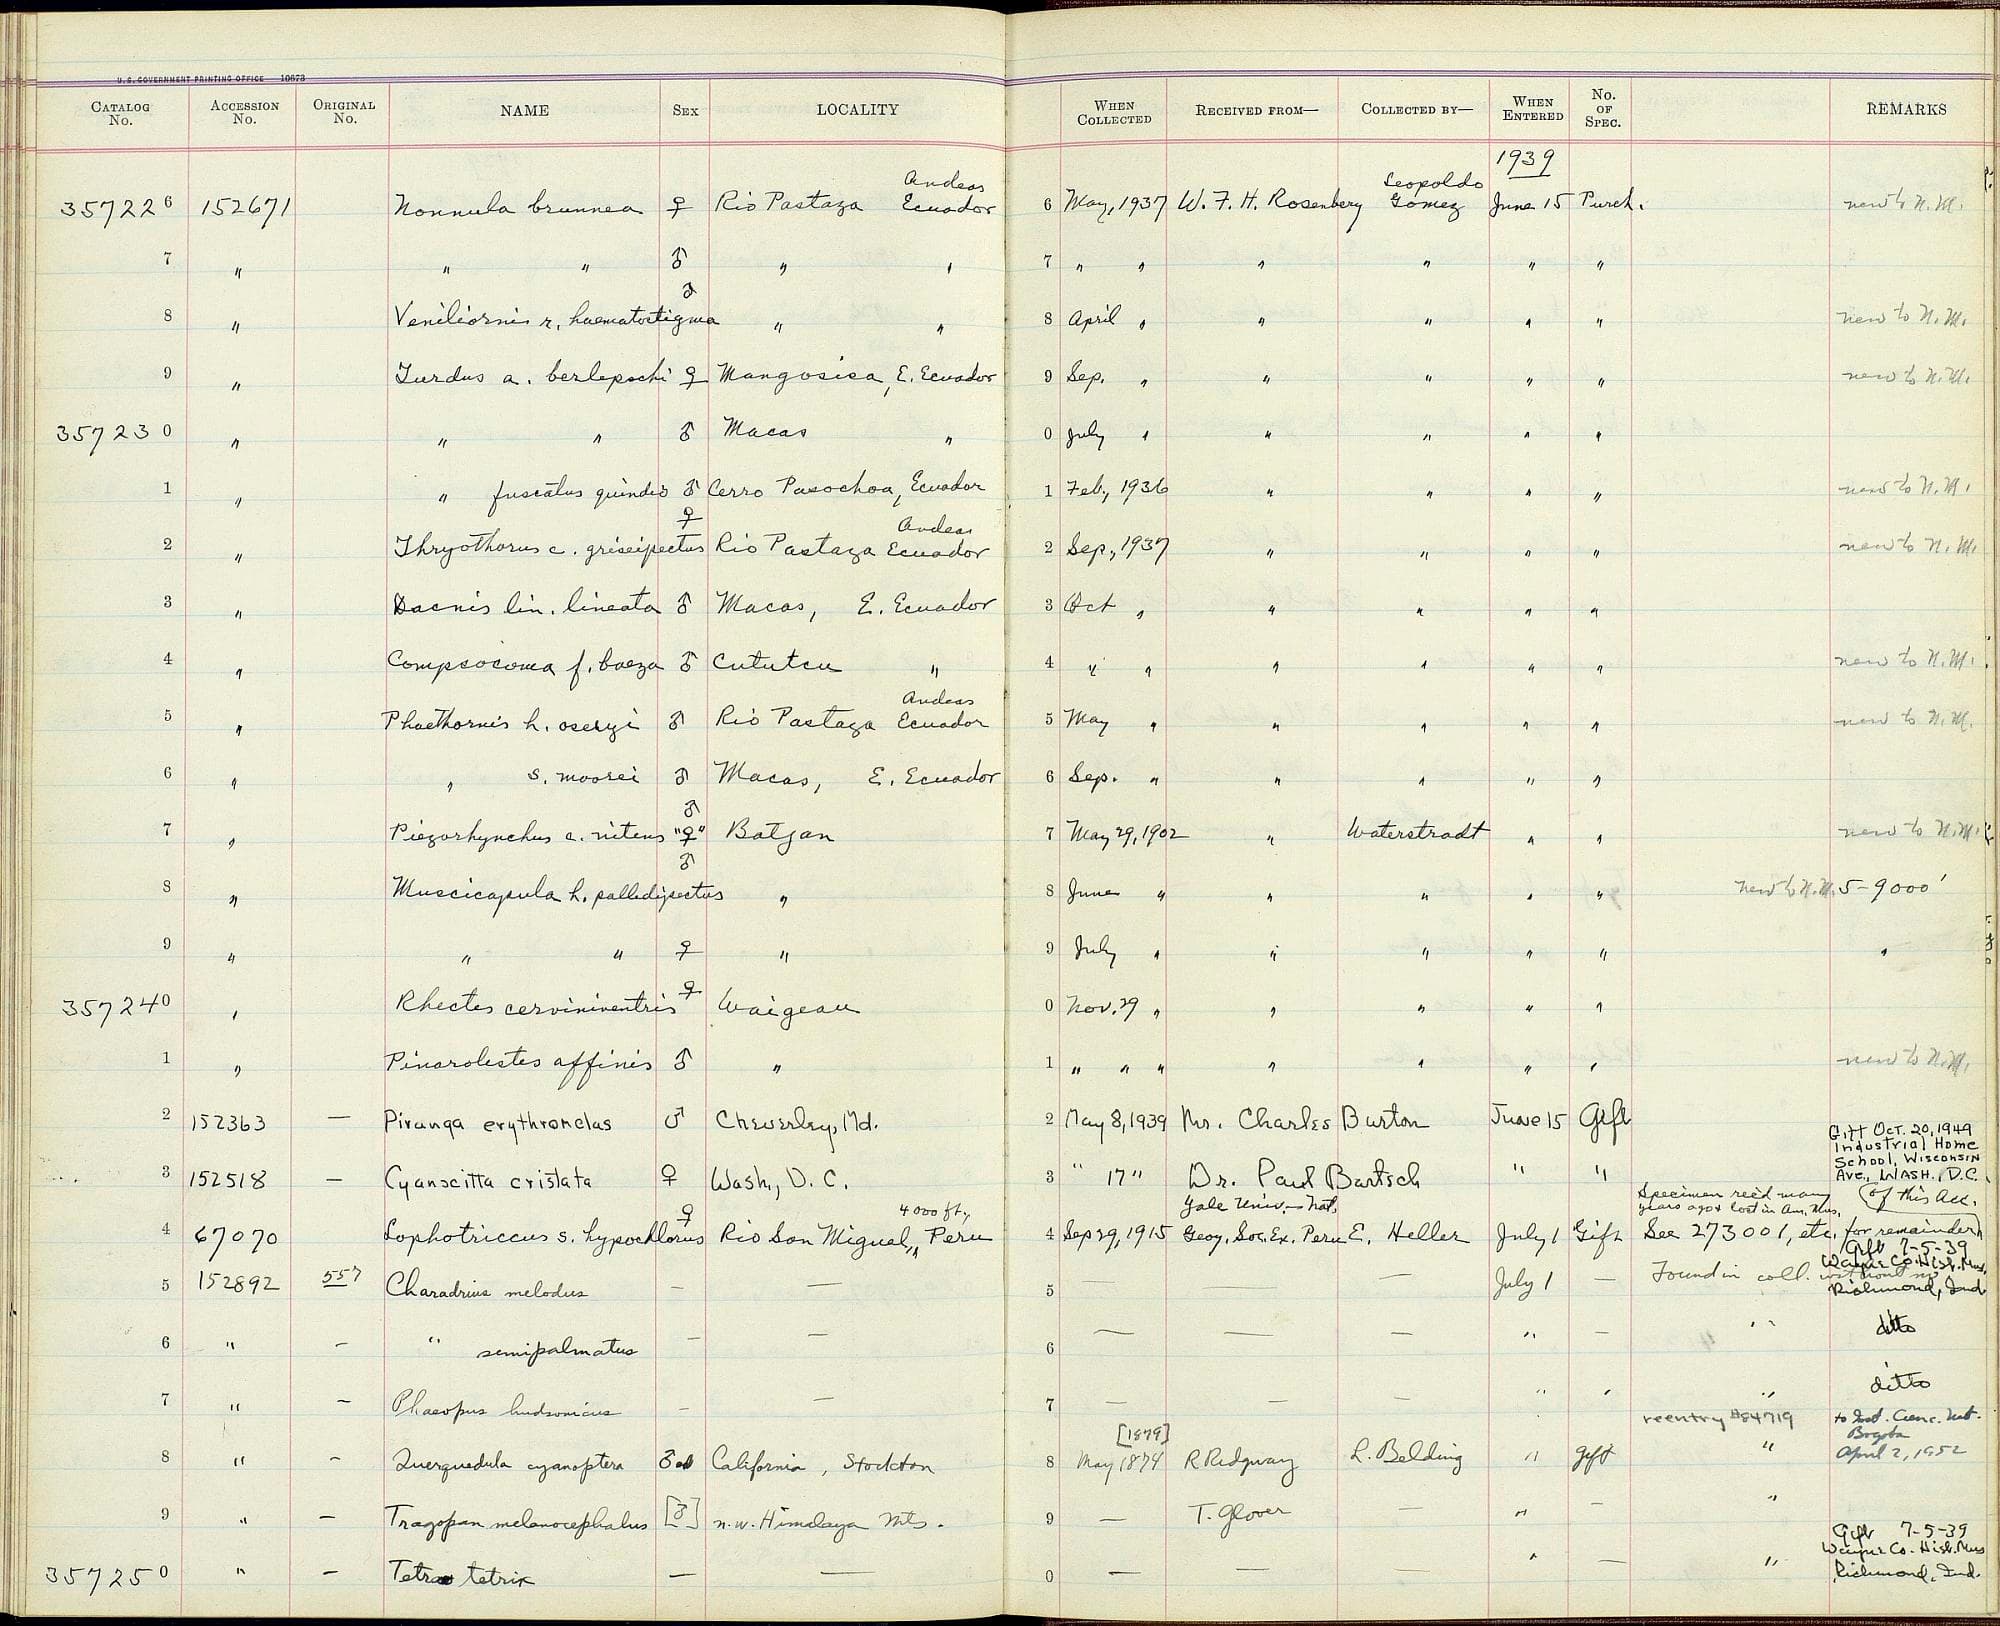 U.S. GOVERNMENT PRINTING OFFICE 10673
CATALOG No. ACCESSION No. ORIGINAL No. NAME SEX LOCALITY WHEN COLLECTED RECEIVED FROM— COLLECTED BY— WHEN ENTERED No. OF SPEC. REMARKS
1939
357226 152671 Nonnula brunnea ♀ Rio Pastaza Andeas Ecuador 6 May, 1937 W. F. H. Rosenberg Leopoldo Gomez June 15 Purch. new to N.M.
7 " " " ♂ " " 7 " " " " " "
8 " Veniliornis r. haematostigma ♂ " " 8 April " " " " " new to N.M.
9 " Turdus a. berlepschi ♀ Mangosisa, E. Ecuador 9 Sep. " " " " " new to N.M.
357230 " " " ♂ Macas " 0 July " " " " "
1 " " fuscatus quindio ♂ Cerro Pasochoa, Ecuador 1 Feb., 1936 " " " " new to N.M.
2 " Thryothorus c. griseipectus ♀ Rio Pastaza Andeas Ecuador 2 Sep., 1937 " " " " new to N.M.
3 " Dacnis lin. lineata ♂ Macas, E. Ecuador 3 Oct " " " " "
4 " Compsocoma f. baeza ♂ Cututcu " 4 " " " " " " new to N.M.
5 " Phaethornis h. oseryi ♂ Rio Pastaza Andeas Ecuador 5 May " " " " " new to N.M.
6 " " s. moorei ♂ Macas, E. Ecuador 6 Sep. " " " " "
7 " Piezorhynchus a. nitens ♂ "♀" Batjan 7 May 29, 1902 " Waterstradt " " new to N.M.
8 " Muscicapula h. pallidipectus ♂ " 8 June " " " " " new to N.M. 5-9000'
9 " " " ♀ " 9 July " " " " " "
357240 " Rhectes cervineiventris ♀ Waigeau 0 Nov. 29 " " " " "
1 " Pinarolestes affinis ♂ " 1 " " " " " " " new to N.M.
2 152363 — Piranga erythromelas ♂ Cheverley, Md. 2 May 8, 1939 Mr. Charles Burton June 15 Gift
Gift Oct. 20, 1949
Industrial Home
School, Wisconsin
Ave., Wash., D.C.
3 152518 — Cyanocitta cristata ♀ Wash., D. C. 3 " 17 " Dr. Paul Bartsch " "
Specimen rec'd many
years ago & lost in Am. Mus.
(of this acc.
4 67070 Lophotriccus s. hypochlorus ♀ Rio San Miguel, 4000 ft., Peru 4 Sep 29, 1915 Yale Univ.—Nat. Geog. Soc. Ex. Peru E. Heller July 1 Gift See 273001, etc. for remainder
Gift 7-5-39
Wayne Co. Hist. Mus.
Richmond, Ind
5 152892 557 Charadrius melodus — — 5 — — — July 1 — Found in coll. without no
6 " — " semipalmatus — — 6 — — — " — " " ditto
7 " — Phaeopus hudsonicus — — 7 — — — " " " ditto
reentry #84719
8 " — Querquedula cyanoptera ♂ad California, Stockton 8 [1879] May 1874 R Ridgway L. Belding " gift "
to Inst. Cienc. Nat.
Bogota
April 2, 1952
9 " — Tragopan melanocephalus [♂] n.w. Himalaya Mts. 9 — T. Glover — " — "
357250 " — Tetrao tetrix — — 0 — — — " — "
Gift 7-5-39
Wayne Co. Hist. Mus
Richmond, Ind.